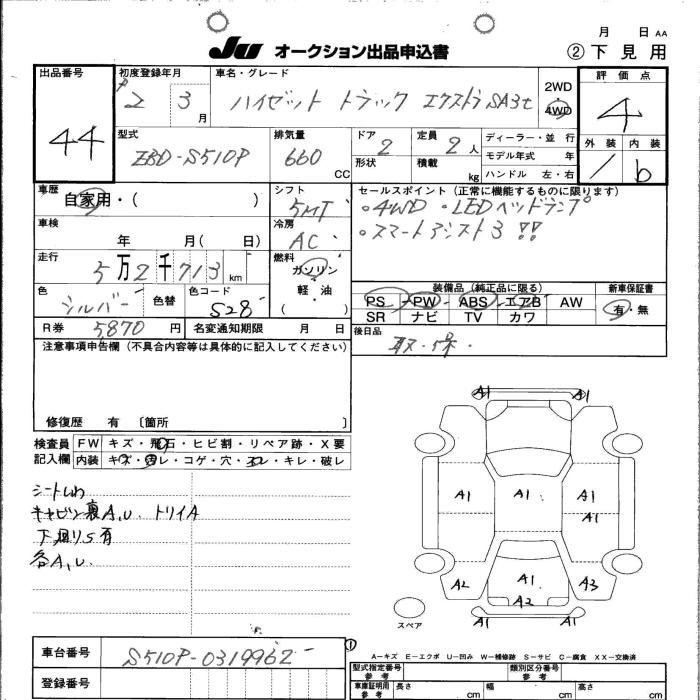 月 日 AA
JU オークション出品申込書 ②下見用
出品番号 初度登録年月 車名・グレード 2WD 評価点
44 R 2 3 月 ハイゼット トラック エクストラ SA3t 4WD 4
型式 排気量 ドア 2 定員 2 人 ディーラー・並行 外装 内装
EBD-S510P 660 CC 形状 積載 kg モデル年式 年
ハンドル 左・右 1 b
車歴 自家用・( ) シフト 5MT セールスポイント(正常に機能するものに限ります)
・4WD ・LEDヘッドランプ
車検 年 月( 日) 冷房 AC ・スマートアシスト3 !!
走行 5万2千713km 燃料 ガソリン 軽・油 ( )
装備品(純正品に限る) 新車保証書
色 シルバー 色替 色コード S28 PS PW ABS エアB AW 有・無
SR ナビ TV カワ
R券 5,870 円 名変通知期限 月 日 後日品
取・保・
注意事項申告欄(不具合内容等は具体的に記入してください)
修復歴 有 〔箇所 〕
検査員 FW キズ・飛石・ヒビ割・リペア跡・X要
記入欄 内装 キズ・汚レ・コゲ・穴・スレ・キレ・破レ
シートしわ
キャビン裏A,U. トリイA
下廻りS有
各A,U.
A1 A1 A1
A1 A1 A1
A1
A2 A1 A3
A2
A1 A1
スペア
A-キズ E-エクボ U-凹み W-補修跡 S-サビ C-腐食 XX-交換済
車台番号 S510P-0319962
型式指定番号 参考 類別区分番号 参考
登録番号 車庫証明用 参考 長さ cm 幅 cm 高さ cm